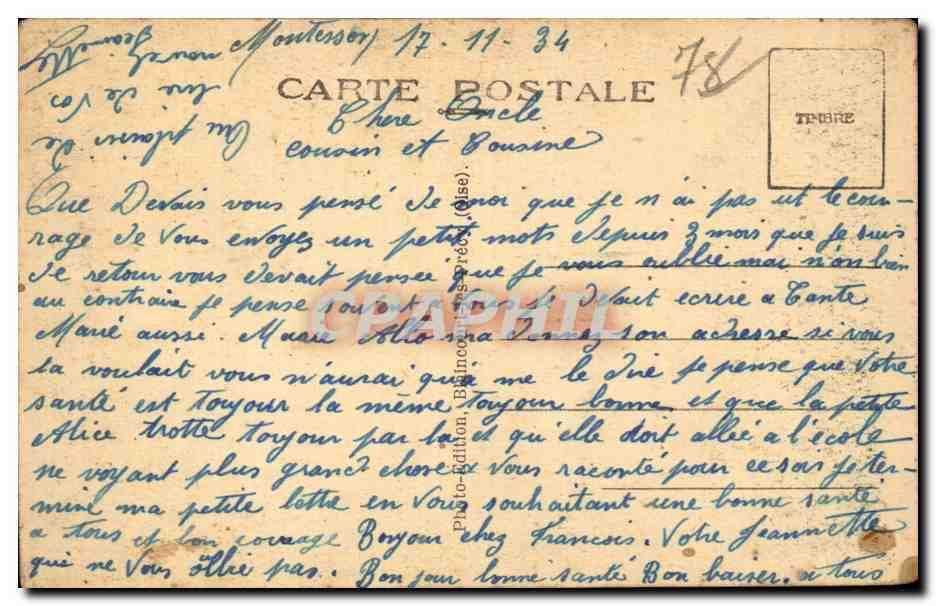 Montesson 17-11-34
78
CARTE POSTALE
TIMBRE
Chere Oncle
cousin et Cousine
Que Devais vous pensé de moi que je n ai pas ut le cou-
rage de vous envoyez un petit mots depuis 3 mois que je suis
de retour vous devait pensee que je vous oublie mai n'on bien
au contraire je pense souvent a vous je devait ecrire a Tante
Marie aussi. Marie Allo ma donnez son adresse si vous
la voulait vous n'aurai qu'a me le dire je pense que votre
santé est toujour la même toujour bonne et que la petite
Alice trotte toujour par la et qu'elle doit allée a l'école
ne voyant plus grand chose a vous raconté pour ce soir je ter-
mine ma petite lettre en vous souhaitant une bonne santé
a tous et bon courage Bonjour chez Francois. Votre Jeannette
qui ne vous oublie pas. Bon jour bonne santé Bon baiser. a tous
Au plaisir de
lire de vos
nouvel
Jeannette
Photo-Edition, Blaincourt-les-Précy (Oise).
CPAPHIL